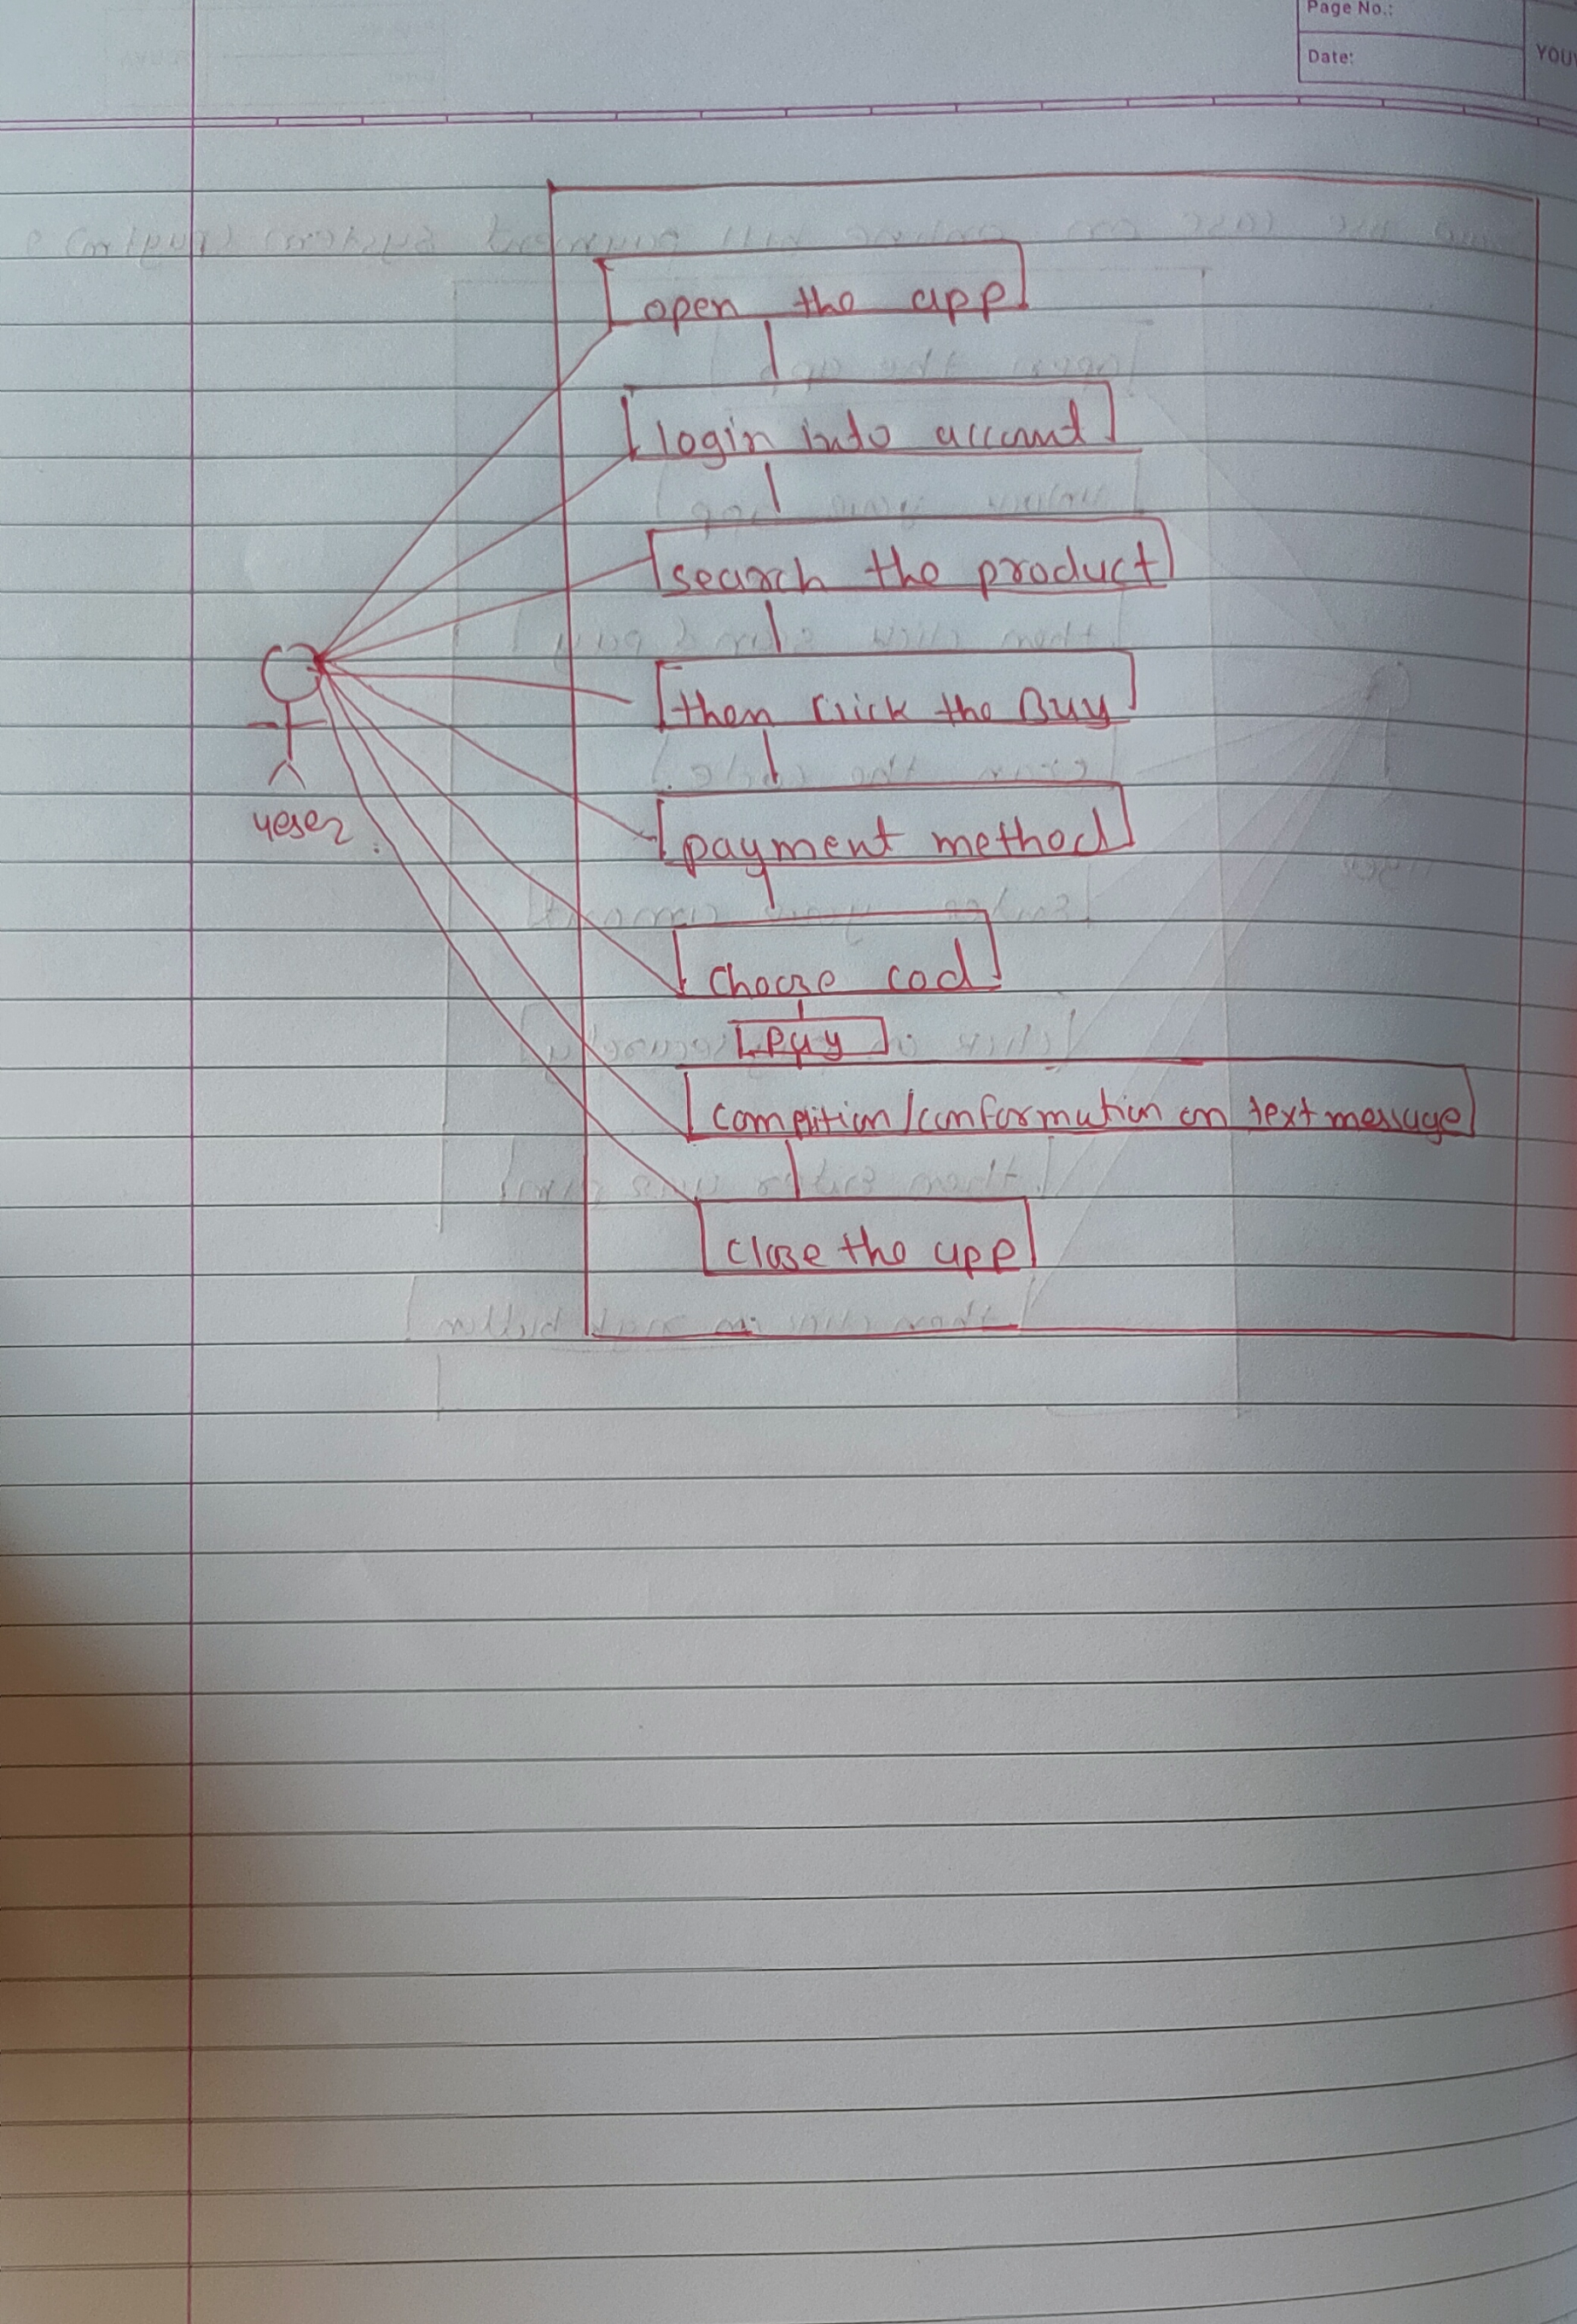 Page No.:
Date:
YOU
open the app
login into account
search the product
then click the Buy
yeser
payment method
choose cod
pay
complition/conformation on text message
close the app